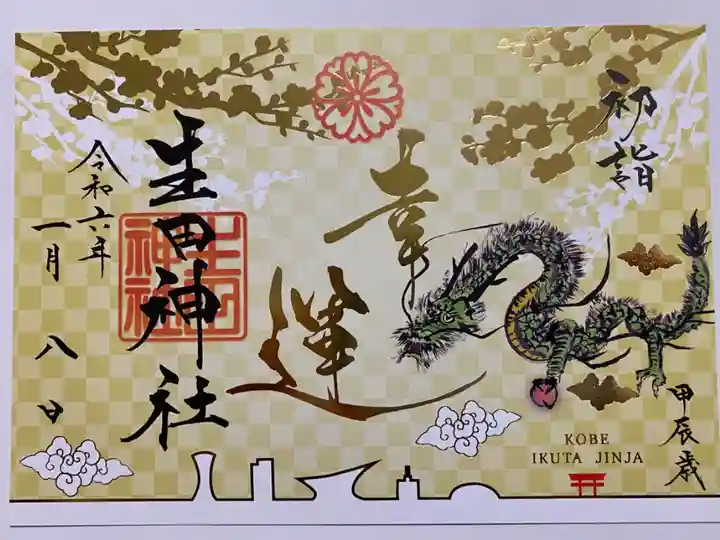 初詣
甲辰歳
幸運
生田神社
生田神社
令和六年
一月八日
KOBE
IKUTA JINJA